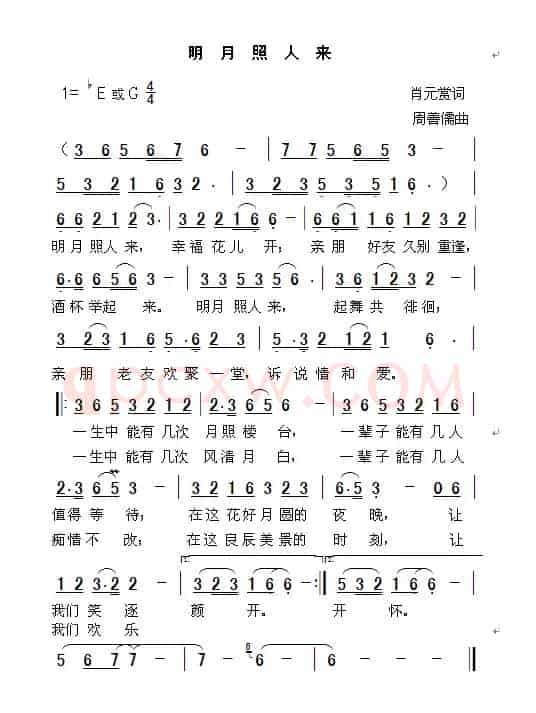 明 月 照 人 来
1= ♭E 或 G 4/4
肖元赏词
周善儒曲
（ 3 6 5 6 7 6 － | 7 7 5 6 5 3 － |
5 3 2 1 6 3 2 · | 3 2 3 5 3 5 1 6 · ）|
6 6 2 1 2 3· | 3 2 2 1 6 6 － | 6 6 1 6 1 2 3 2 |
明月 照人 来， 幸福 花儿 开； 亲朋 好友 久别 重逢，
6·6 6 6 5 6 3 － | 3 3 5 3 5 6 － | 3 6 1 2 3 2 － |
酒杯 举起 来。 明月 照人 来， 起舞 共 徘徊；
3 2 3 1 6 5·6 | 5 3 2 1 2 1 6 · |
亲 朋 老友 欢聚 一堂， 诉 说 情 和 爱。
|: 3 6 5 3 2 1 2 | 2·3 6 5 6 － | 3 6 5 3 2 1 6 |
一生中 能有 几次 月照 楼 台， 一辈子 能有 几人
一生中 能有 几次 风清 月 白， 一辈子 能有 几人
2·3 6 5 3 － | 3 2 1 6 1 2 3 | 6·5 3 － 0 6 |
值得 等 待； 在这 花好 月圆的 夜 晚， 让
痴情 不 改； 在这 良辰 美景的 时 刻， 让
1 2 3·2 2 － | 3 2 3 1 6 6 － :| 5 3 2 1 6 6 － |
1. 2.
我们 笑 逐 颜 开。 开 怀。
我们 欢 乐
5 6 7 7 － | 7 － 6 － | 6 － － － ||